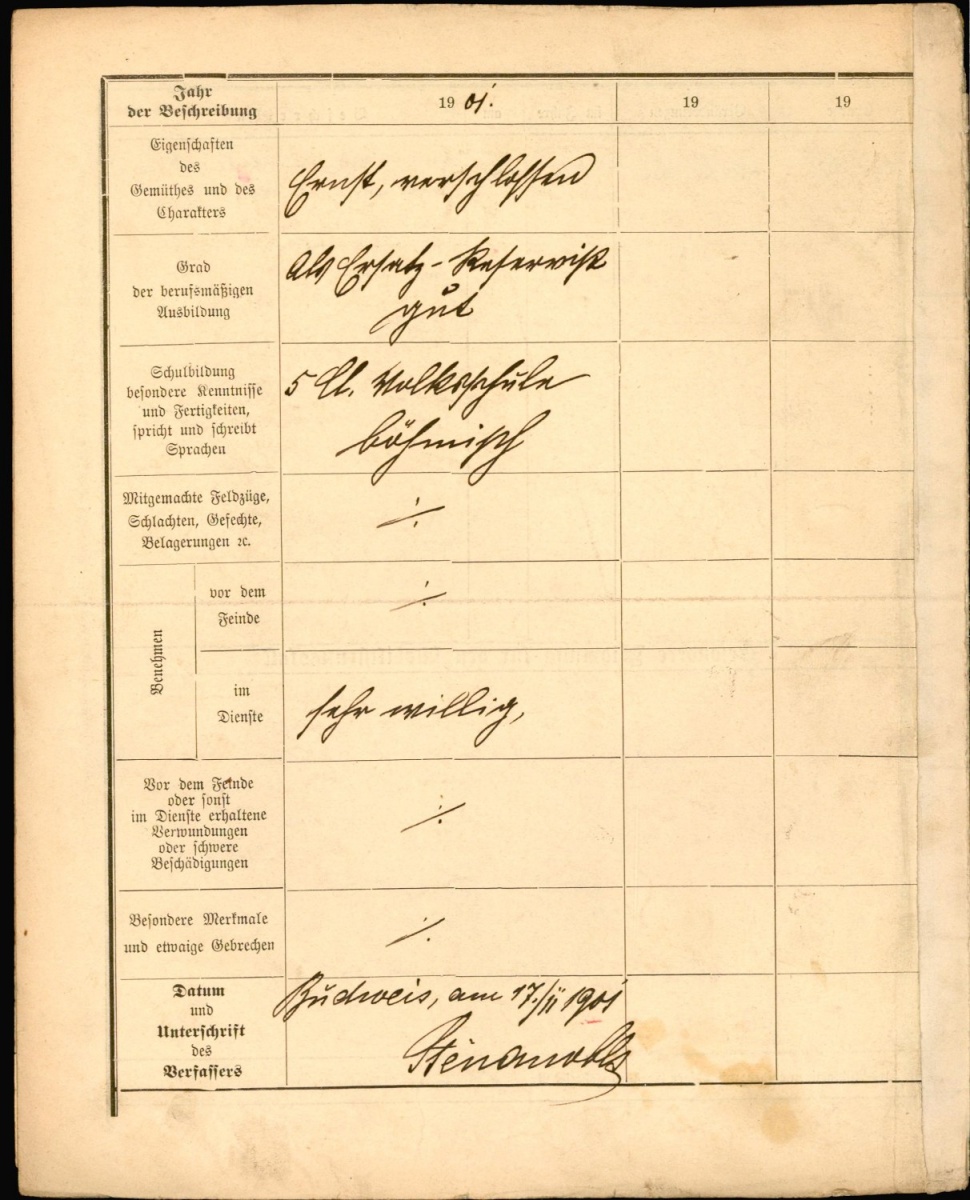 Jahr
der Beschreibung
19 01.
19
19
Eigenschaften
des
Gemüthes und des
Charakters
Ernst, verschlossen
Grad
der berufsmäßigen
Ausbildung
Als Ersatz-Reservist
gut
Schulbildung
besondere Kenntnisse
und Fertigkeiten,
spricht und schreibt
Sprachen
5 Cl. Volksschule
böhmisch
Mitgemachte Feldzüge,
Schlachten, Gefechte,
Belagerungen ꝛc.
·/.
Benehmen
vor dem
Feinde
·/.
im
Dienste
sehr willig,
Vor dem Feinde
oder sonst
im Dienste erhaltene
Verwundungen
oder schwere
Beschädigungen
·/.
Besondere Merkmale
und etwaige Gebrechen
·/.
Datum
und
Unterschrift
des
Verfassers
Budweis, am 17./II 1901